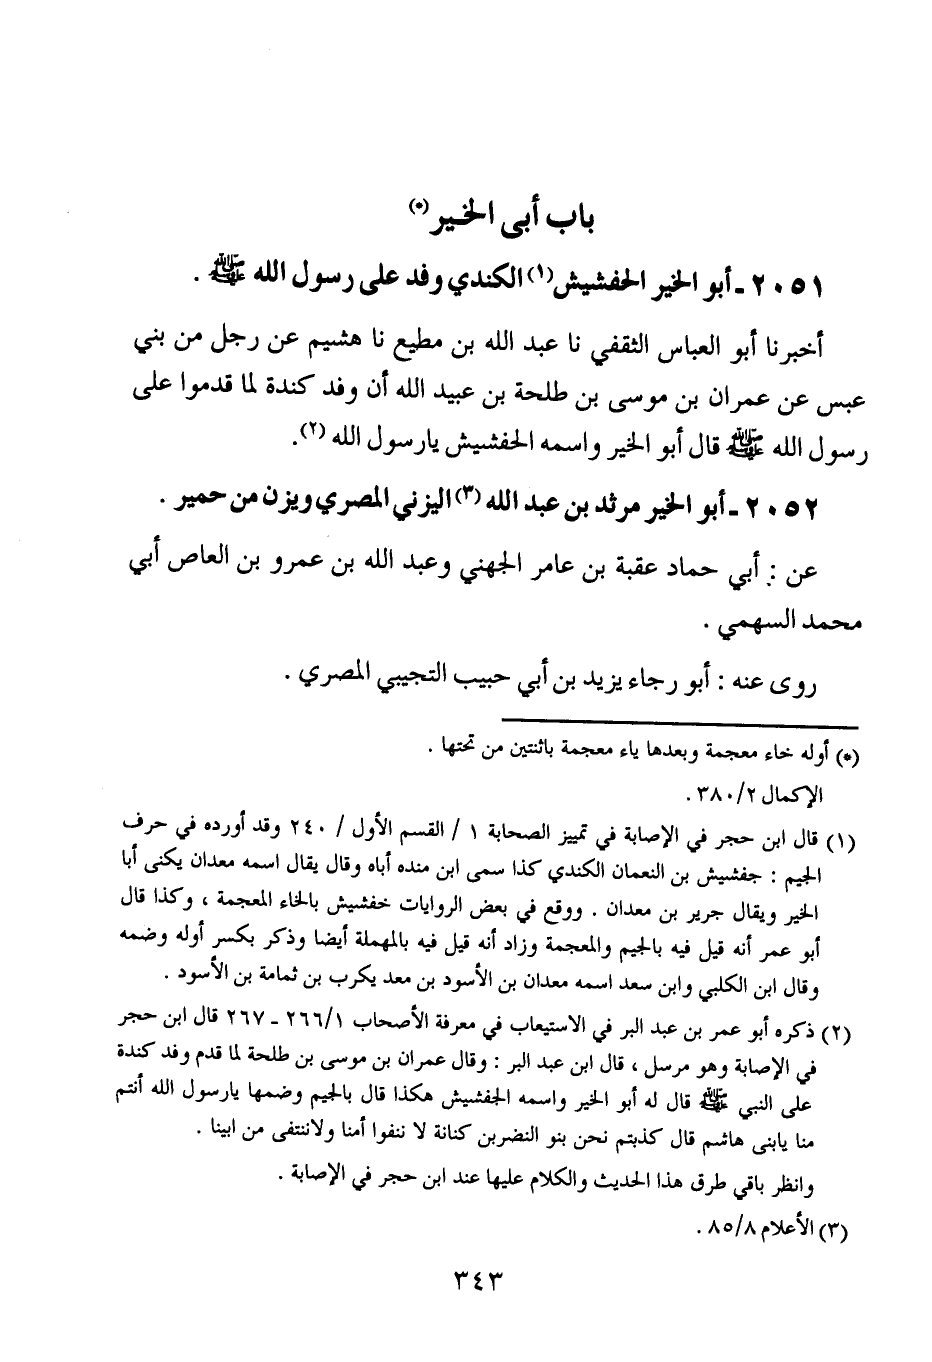 باب أبى الخير (*)
٢٠٥١ - أبو الخير الحفشيش (١) الكندي وفد على رسول الله ﷺ .
أخبرنا أبو العباس الثقفي نا عبد الله بن مطيع نا هشيم عن رجل من بني
عبس عن عمران بن موسى بن طلحة بن عبيد الله أن وفد كندة لما قدموا على
رسول الله ﷺ قال أبو الخير واسمه الحفشيش يارسول الله (٢).
٢٠٥٢ - أبو الخير مرثد بن عبد الله (٣) اليزني المصري ويزن من حمير .
عن : أبي حماد عقبة بن عامر الجهني وعبد الله بن عمرو بن العاص أبي
محمد السهمي .
روى عنه : أبو رجاء يزيد بن أبي حبيب التجيبي المصري .
(*) أوله خاء معجمة وبعدها ياء معجمة باثنتين من تحتها .
الإكمال ٣٨٠/٢ .
(١) قال ابن حجر في الإصابة في تمييز الصحابة ١ / القسم الأول / ٢٤٠ وقد أورده في حرف
الجيم : جفشيش بن النعمان الكندي كذا سمى ابن منده أباه وقال يقال اسمه معدان يكنى أبا
الخير ويقال جرير بن معدان . ووقع في بعض الروايات خفشيش بالخاء المعجمة ، وكذا قال
أبو عمر أنه قيل فيه بالجيم والمعجمة وزاد أنه قيل فيه بالمهملة أيضا وذكر بكسر أوله وضمه
وقال ابن الكلبي وابن سعد اسمه معدان بن الأسود بن معد يكرب بن ثمامة بن الأسود .
(٢) ذكره أبو عمر بن عبد البر في الاستيعاب في معرفة الأصحاب ٢٦٦/١ - ٢٦٧ قال ابن حجر
في الإصابة وهو مرسل ، قال ابن عبد البر : وقال عمران بن موسى بن طلحة لما قدم وفد كندة
على النبي ﷺ قال له أبو الخير واسمه الجفشيش هكذا قال بالجيم وضمها يارسول الله أنتم
منا يابنى هاشم قال كذبتم نحن بنو النضربن كنانة لا ننفوا أمنا ولاننتفى من ابينا .
وانظر باقي طرق هذا الحديث والكلام عليها عند ابن حجر في الإصابة .
(٣) الأعلام ٨٥/٨ .
٣٤٣